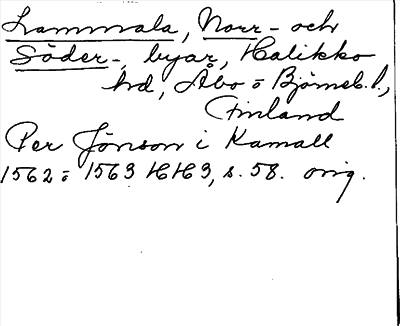 Lammala, Norr- och
Söder-, byar, Halikko
hd, Åbo o Björneb. l.,
Finland
Per Jönson i Kamall
1562 o 1563 HH3, s. 58. orig.